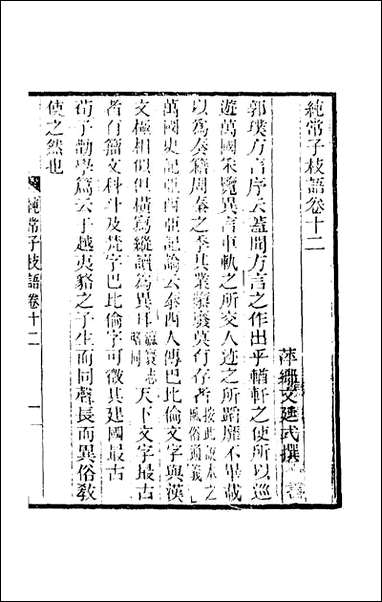 純常子枝語卷十二
萍鄉文廷式撰
郭璞方言序云蓋聞方言之作出乎輶軒之使所以巡
遊萬國采覽異言車軌之所交人迹之所蹈靡不畢載
以為奏籍周秦之季其業隳廢莫有存者按此說本之風俗通義
萬國史記亞西亞記論云泰西人傳巴比倫文字與漢
文極相似但橫寫縱讀為異耳瀛寰志略同天下文字最古
者有籀文科斗及梵字巴比倫字可徵其建國最古
荀子勸學篇云于越夷貉之子生而同聲長而異俗敎
使之然也
純常子枝語卷十二
一